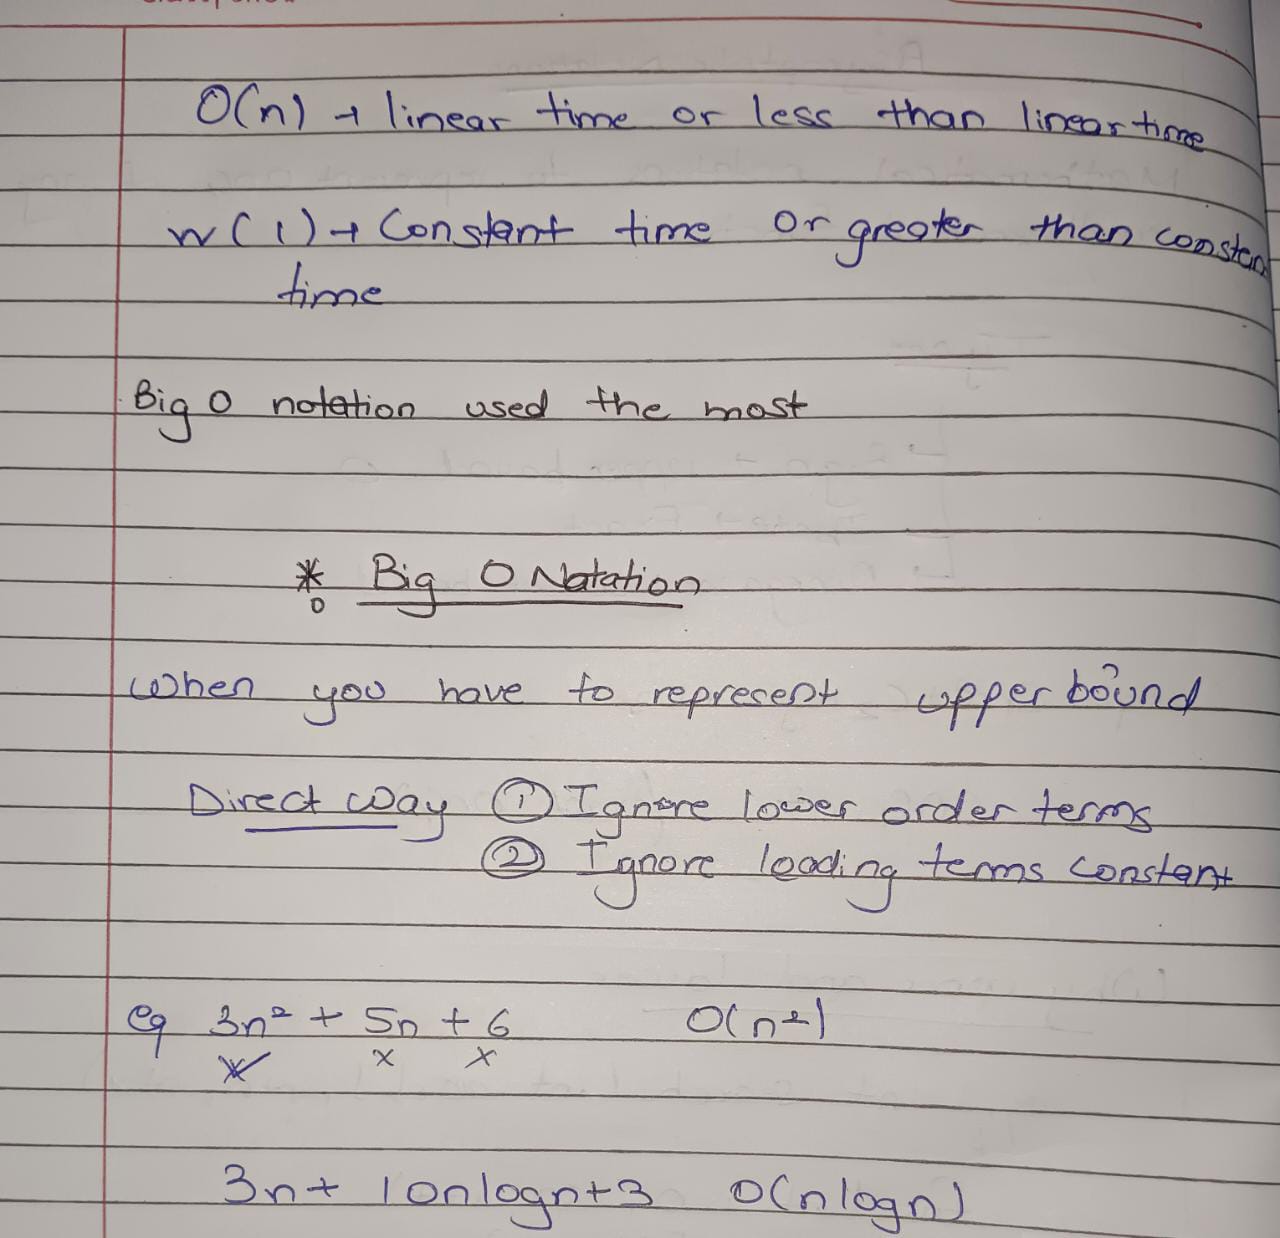 O(n) → linear time or less than linear time
w(1) → Constant time or greater than constan
time
Big O notation used the most
* Big O Notation
When you have to represent upper bound
Direct way ① Ignore lower order terms
② Ignore leading terms constant
eg 3n² + 5n + 6 O(n²)
3n + 10nlogn+3 O(nlogn)